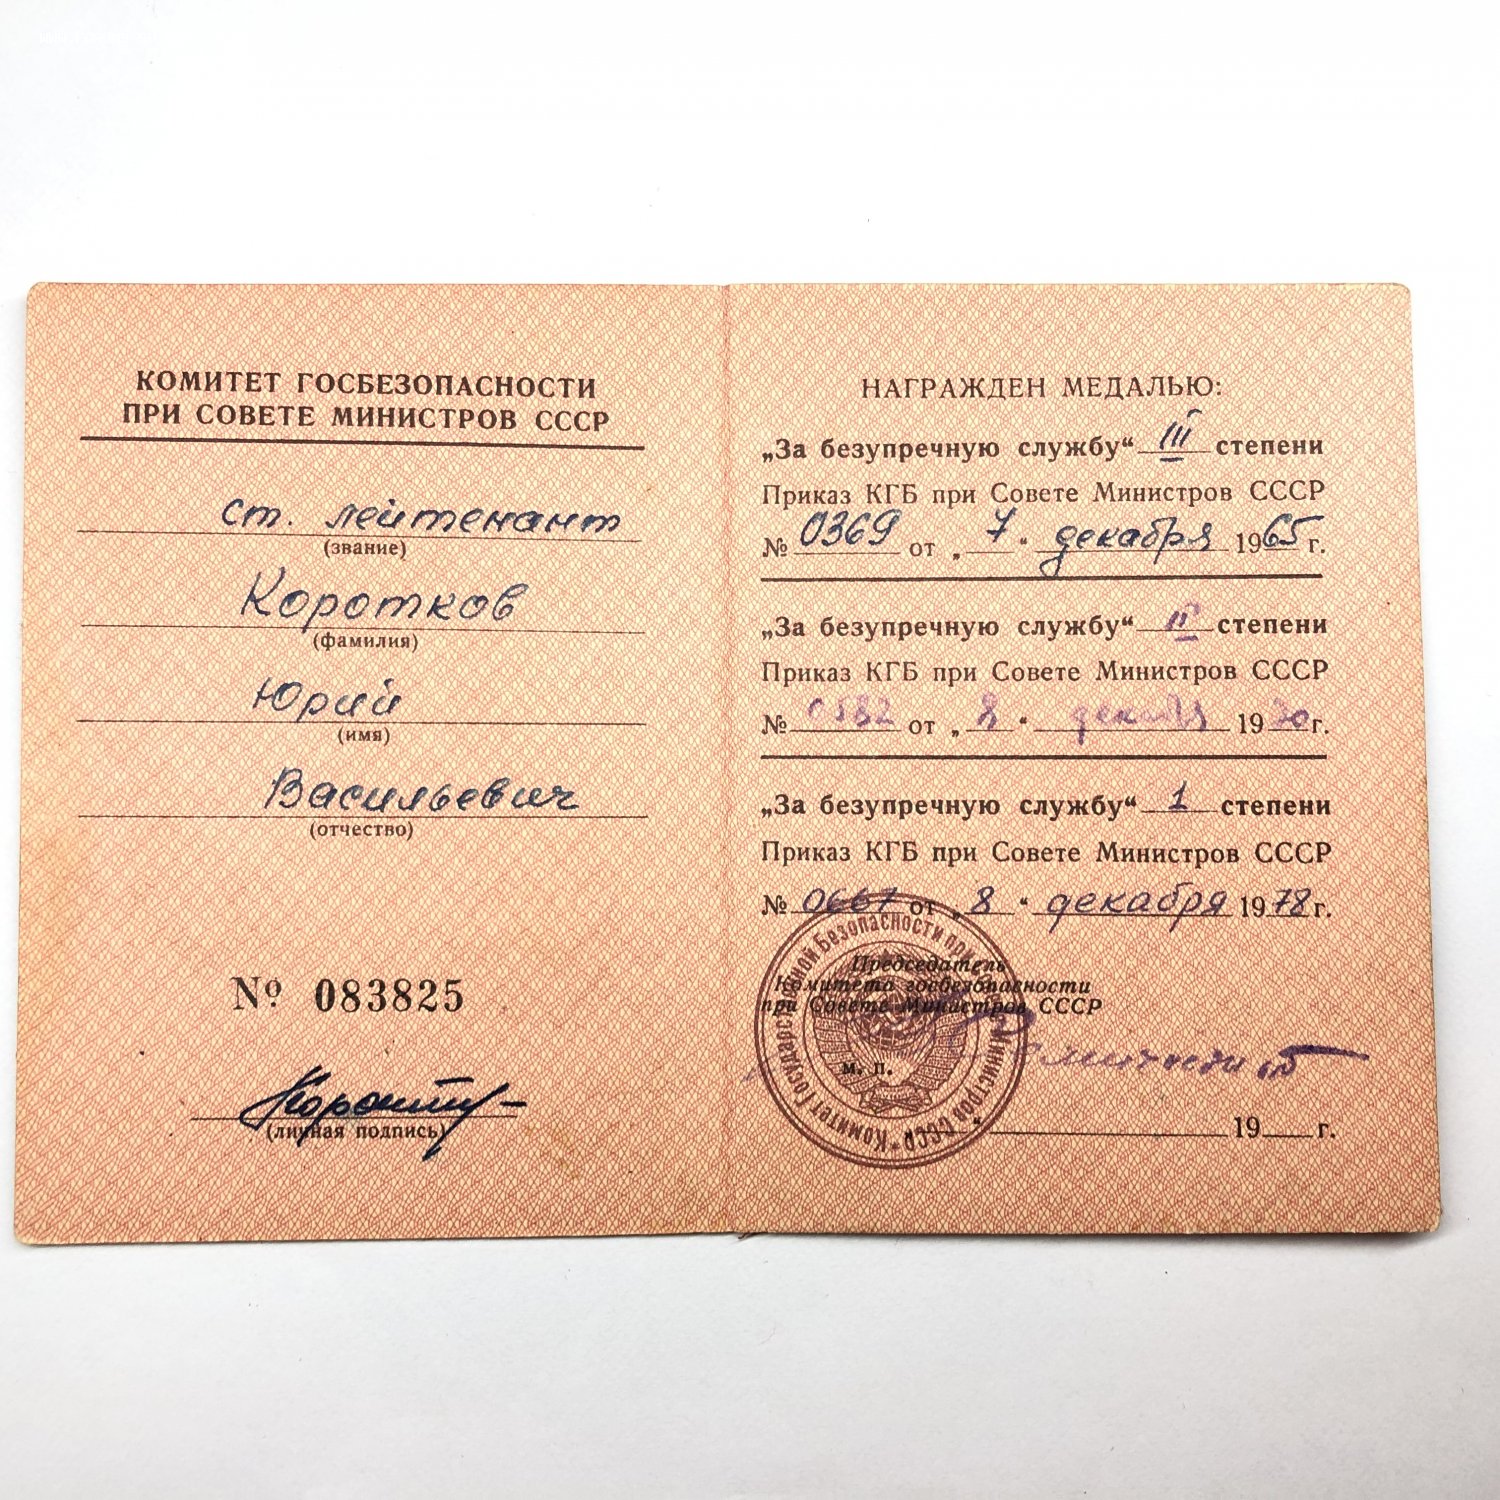 КОМИТЕТ ГОСБЕЗОПАСНОСТИ
ПРИ СОВЕТЕ МИНИСТРОВ СССР
ст. лейтенант
(звание)
Коротков
(фамилия)
Юрий
(имя)
Васильевич
(отчество)
№ 083825
(личная подпись)
НАГРАЖДЕН МЕДАЛЬЮ:
„За безупречную службу“ III степени
Приказ КГБ при Совете Министров СССР
№ 0369 от „7“ декабря 1965 г.
„За безупречную службу“ II степени
Приказ КГБ при Совете Министров СССР
№ 0582 от „8“ декабря 1970 г.
„За безупречную службу“ 1 степени
Приказ КГБ при Совете Министров СССР
№ 0667 от „8“ декабря 1978 г.
Председатель
Комитета госбезопасности
при Совете Министров СССР
м. п.
19 г.
Комитет Государственной Безопасности при Совете Министров СССР